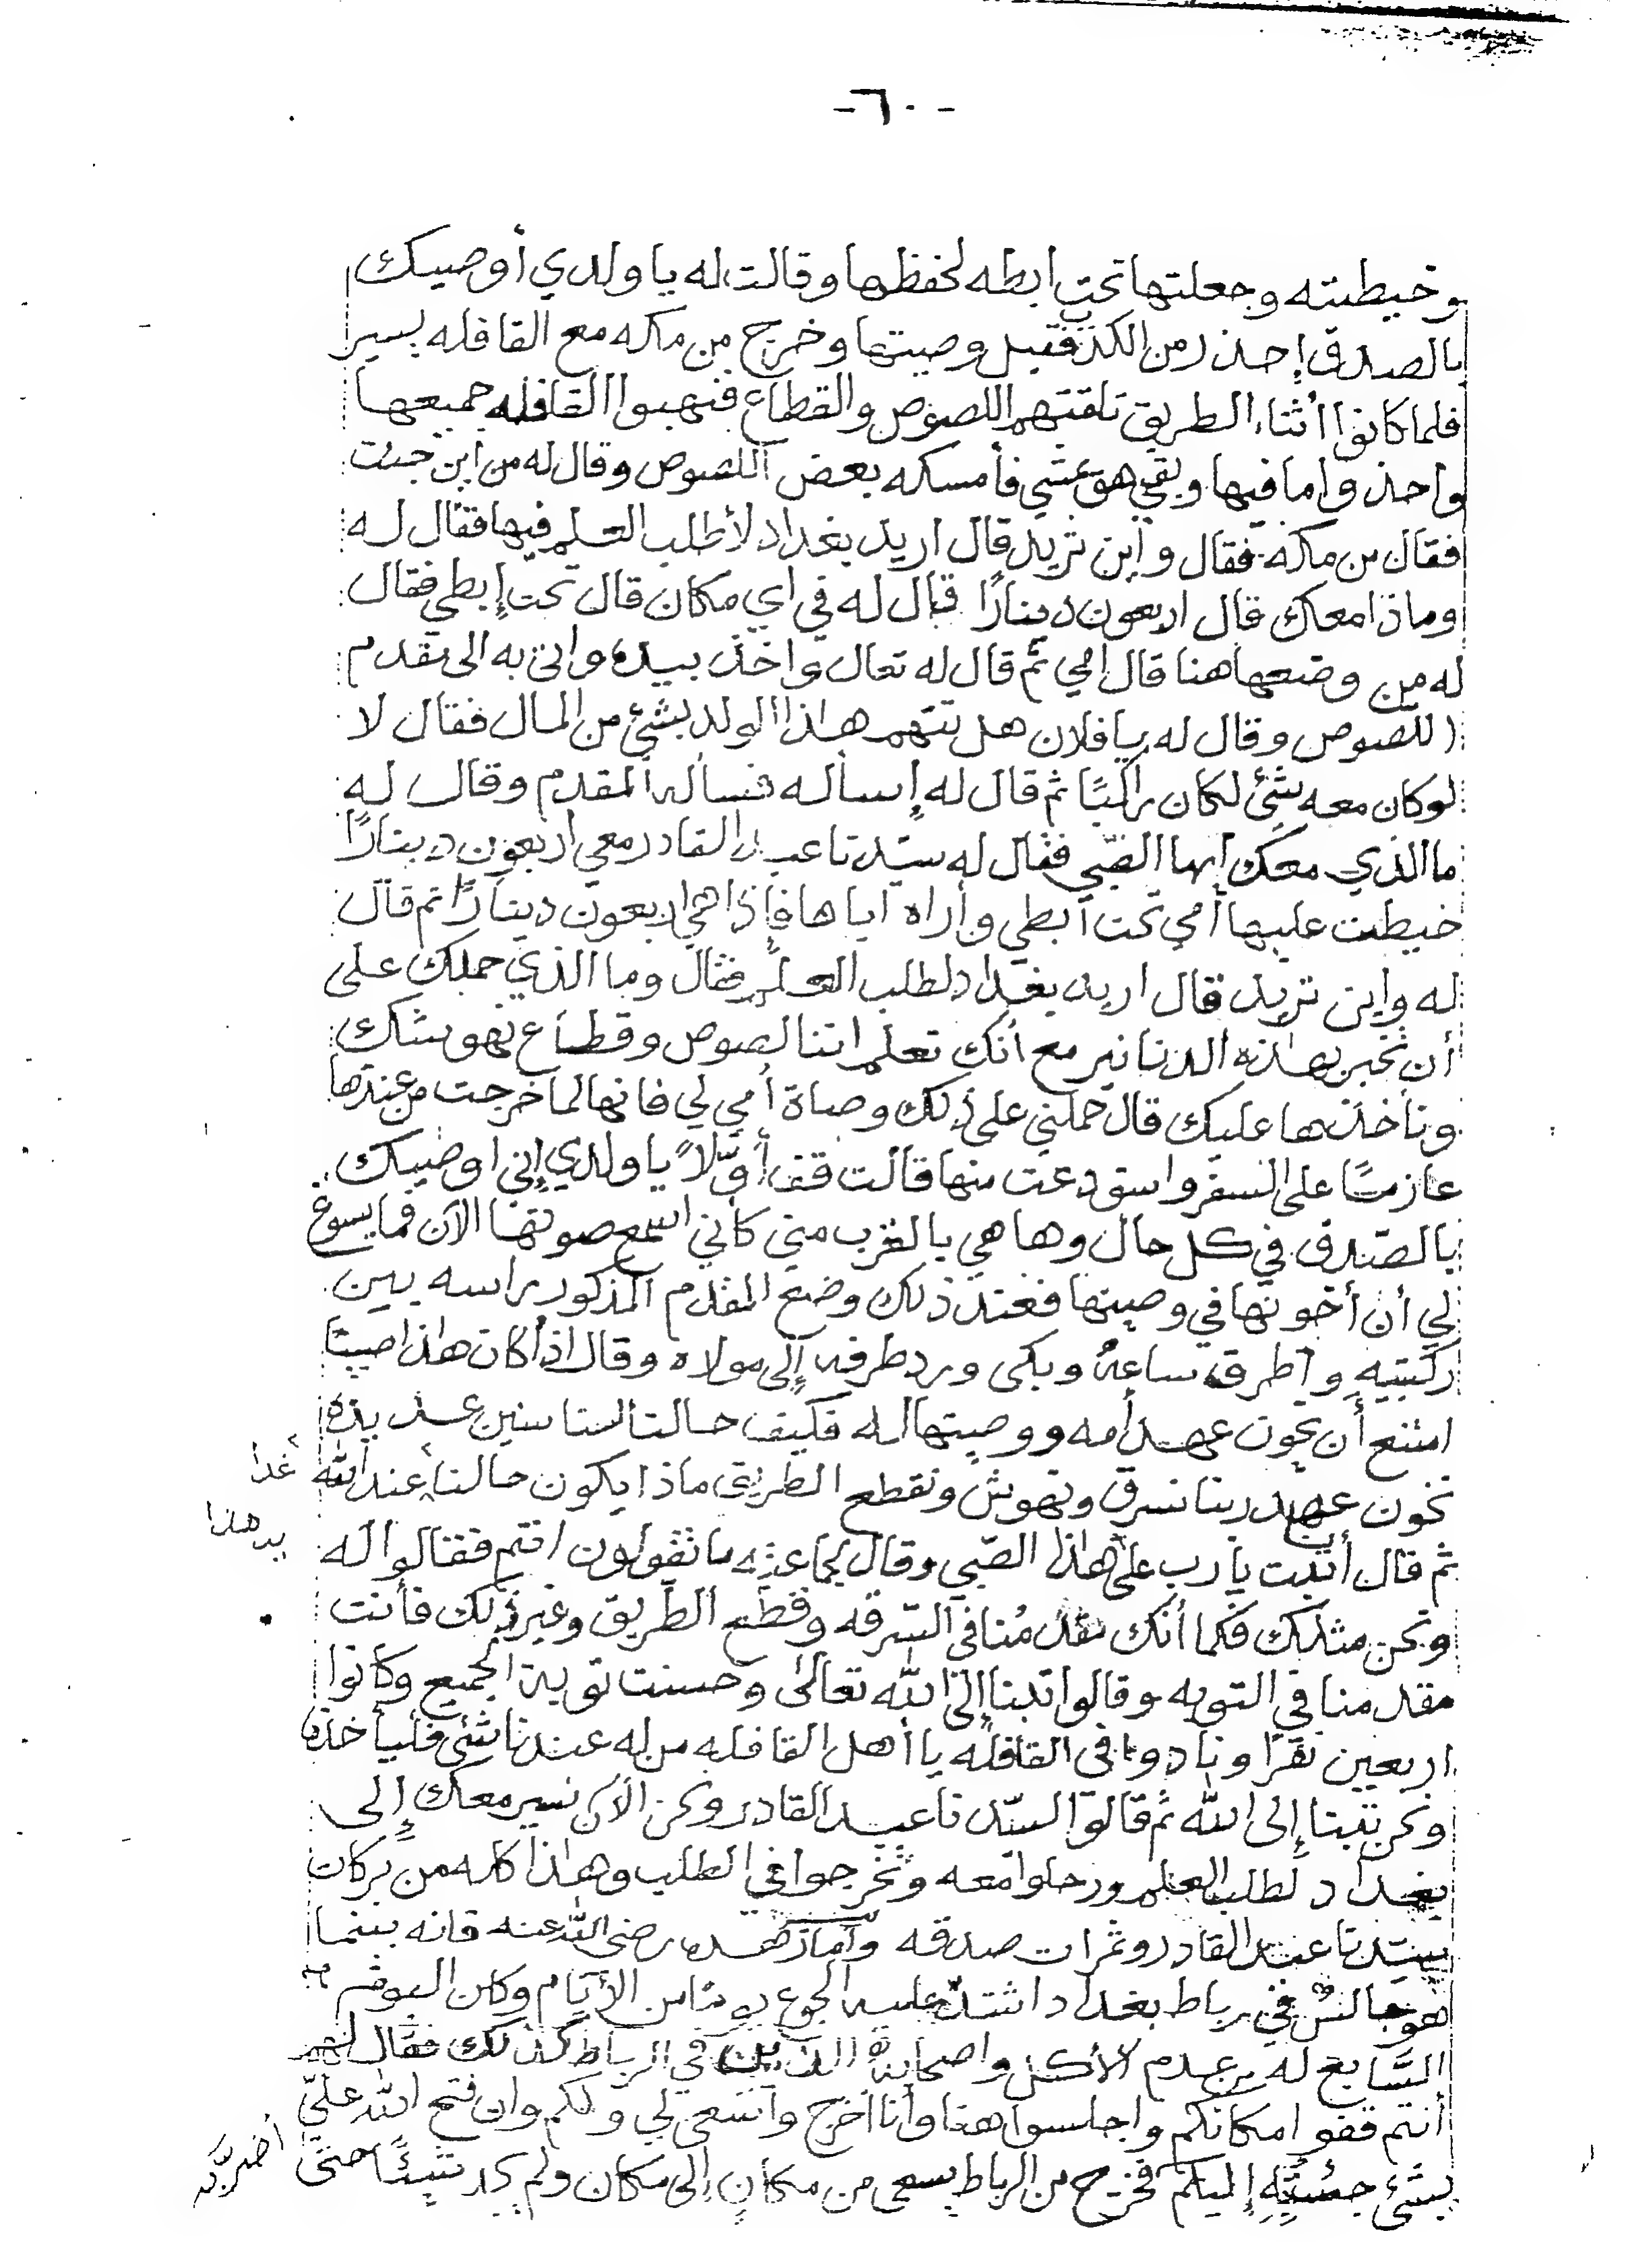 -٦٠-
وخيطته وجعلتها تحت ابطه لحفظها وقالت له يا ولدي أوصيك
بالصدق إحذر من الكذب فقبل وصيتها وخرج من مكه مع القافله يسير
فلما كانوا أثناء الطريق تلقتهم اللصوص والقطاع فنهبوا القافله جميعها
واخذوا ما فيها وبقي هو يمشي فأمسكه بعض اللصوص وقال له من اين جئت
فقال من مكه فقال وأين تريد قال اريد بغداد لأطلب العلم فيها فقال له
وماذا معك قال اربعون دينارًا قال له في اي مكان قال تحت إبطي فقال
له من وضعها هنا قال امي ثم قال له تعال واخذ بيده واتى به الى مقدم
اللصوص وقال له يا فلان هل تتهم هذا الولد بشئ من المال فقال لا
لو كان معه شئ لكان راكبًا ثم قال له إسأله فسأله المقدم وقال له
ما الذي معك أيها الصّبي فقال له سيّدنا عبد القادر معي اربعون دينارًا
خيطت عليها أمي تحت ابطي وأراه اياها فإذا هي اربعون دينارًا ثم قال
له واين تريد قال اريد بغداد لطلب العلم فقال وما الذي حملك على
أن تخبر بهذه الدنانير مع أنك تعلم اننا لصوص وقطاع نهوشك
ونأخذها عليك قال حملني على ذلك وصاة أمي لي فانها لما خرجت من عندها
عازمًا على السفر واستودعت منها قالت قف أوّلاً يا ولدي إني اوصيك
بالصّدق في كل حال وها هي بالقرب مني كأني اسمع صوتها الآن فما يسوغ
لي أن أخونها في وصيتها فعند ذلك وضع المقدم المذكور راسه بين
ركبتيه وأطرق ساعةً وبكى ورد طرفه إلى مولاه وقال اذا كان هذا صبيًّا
امتنع أن يخون عهد أمه ووصيتها له فكيف حالنا لنا سنين عديده
نخون عهد ربنا نسرق ونهوش ونقطع الطريق ماذا يكون حالنا عند الله غدا
ثم قال أتبت يا رب على يد هذا الصّبي وقال لجماعته ما تقولون انتم فقالوا له
ونحن مثلك فكما أنك مقدمنا في السّرقه وقطع الطّريق وغير ذلك فأنت
مقدمنا في التوبه وقالوا تبنا إلى الله تعالى وحسنت توبة الجميع وكانوا
اربعين نفرًا ونادوا في القافله يا أهل القافله من له عندنا شئ فليأخذه
ونحن تبنا إلى الله ثم قالوا لسيّدنا عبد القادر ونحن الأن نسير معك إلى
بغداد لطلب العلم ورحلوا معه وتخرجوا في الطلب وهذا كله من بركات
سيّدنا عبد القادر وثمرات صدقه وأما زهده رضي الله عنه فانه بينما
هو جالسٌ في رباط بغداد اشتدّ عليه الجوع يومًا من الأيّام وكان اليوم
السّابع له من عدم الأكل واصحابه الذين في الرباط كذلك فقال لهم
أنتم قفوا مكانكم واجلسوا هنا وأنا اخرج وأسعى لي ولكم وان فتح الله عليّ
بشئ جئت به إليكم فخرج من الرباط يسعى من مكان إلى مكان ولم يجد شيئًا حتى اضرّ به